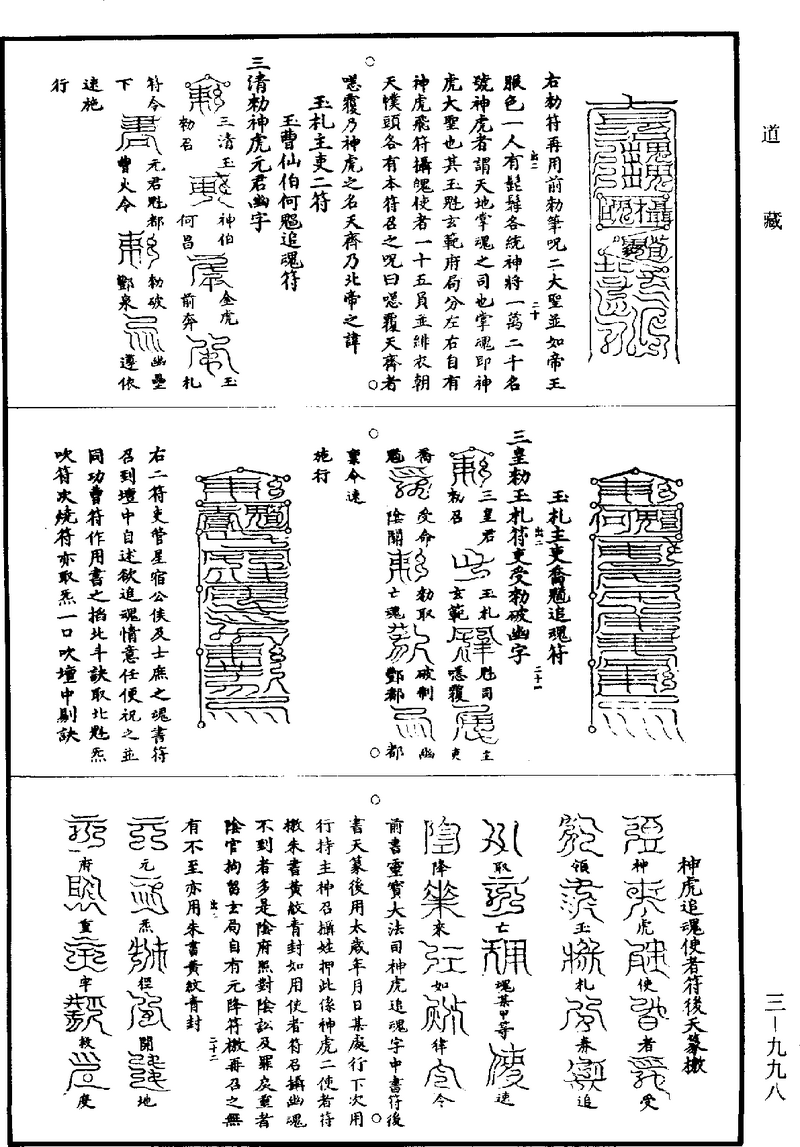 道藏
右勑符再用前勑筆呪二大聖並如帝王
服色一人有髭髯各統神將一萬二千名
號神虎者謂天地掌魂之司也掌魂即神
虎大聖也其玉魁玄範府局分左右自有
神虎飛符攝魄使者一十五員並緋衣朝
天幞頭各有本符召之呪曰嗯覆天齊者
嗯覆乃神虎之名天齊乃北帝之諱
玉札主吏二符
玉曹仙伯何魒追魂符
三清勑神虎元君幽字
三清玉
勑召
神伯
何昌
金虎
前奔
玉
札
符令
元君魁都
下
曹火令
勑破
酆泉
幽壘
遵依
速施
行
玉札主吏喬魒追魂符
三皇勑玉札符吏受勑破幽字
三皇君
勑召
玉札
玄範
魁司
嗯覆
主
吏
喬
受命
勑取
破制
幽
魒
陰關
亡魂
酆都
都
稟令速
施行
右二符吏管星宿公侯及士庶之魂書符
召到壇中自述欲追魂情意任便祝之並
同功曹符作用書之掐北斗訣取北魁炁
吹符次燒符亦取炁一口吹壇中剔訣
神虎追魂使者符後天篆檄
神虎使者受
領玉札奏追
取亡魂某甲等速
降來如律令
前書靈寶大法司神虎追魂字中書符後
書天篆後用太歲年月日某處行下次用
行持主神召攝姓押此係神虎二使者符
檄朱書黃紋青封如用使者符召攝幽魂
不到者多是陰府照對陰訟及罪戾重者
陰官拘留玄局自有元降符檄再召之無
有不至亦用朱書黃紋青封
元炁徑開地
府重牢救度
三-九九八